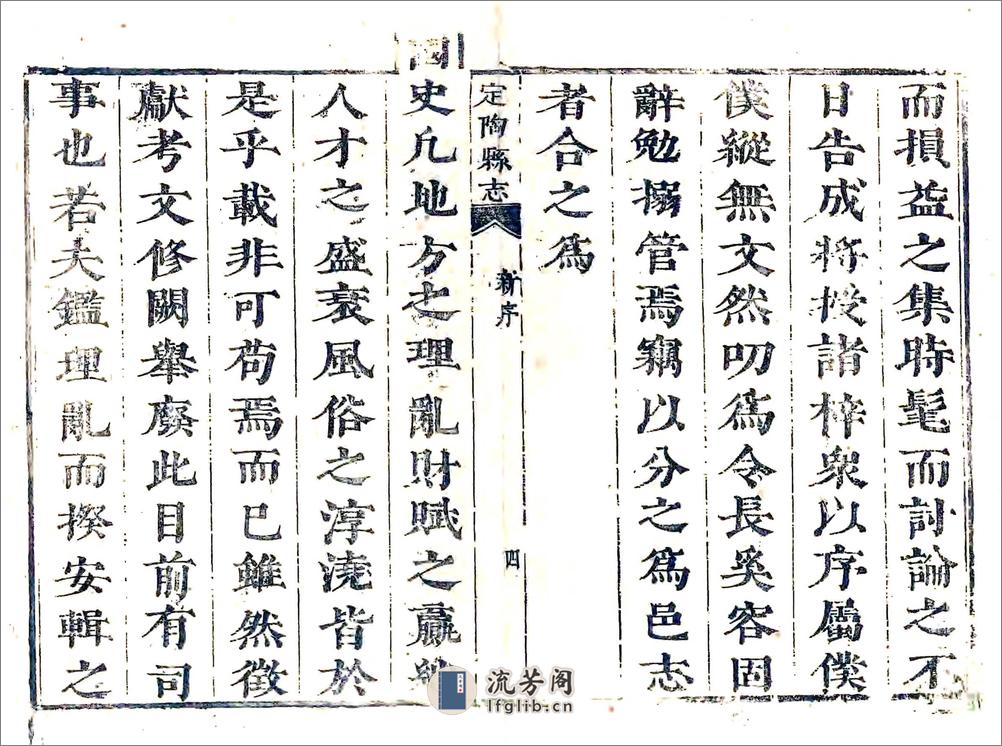 而損益之集時髦而討論之不
日告成將授諸梓衆以序屬僕
僕縱無文然叨爲令長奚容固
辭勉搦管焉竊以分之爲邑志
者合之爲
定陶縣志
新序
四
國
史凡地方之理亂財賦之贏絀
人才之盛衰風俗之淳澆皆於
是乎載非可苟焉而已雖然徵
獻考文修闕舉廢此目前有司
事也若夫鑑理亂而揆安輯之
流芳阁
lfglib.cn